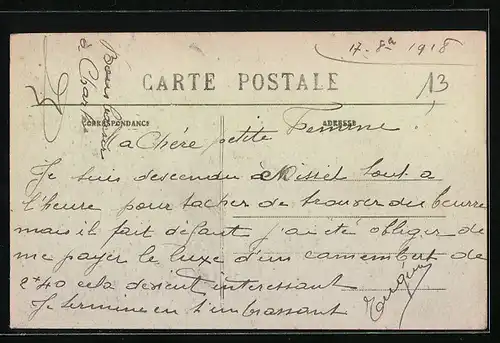 17-8a 1918
CARTE POSTALE
13
CORRESPONDANCE
ADRESSE
Bons baisers
à Charles
Ma Chére petite Femme !
Je suis descendu à Missel tout a
l'heure pour tacher de trouver du beurre
mais il fait défaut j'ai été obliger de
me payer le luxe d'un camembert de
2f40 cela devient interessant
Je termine en t'embrassant